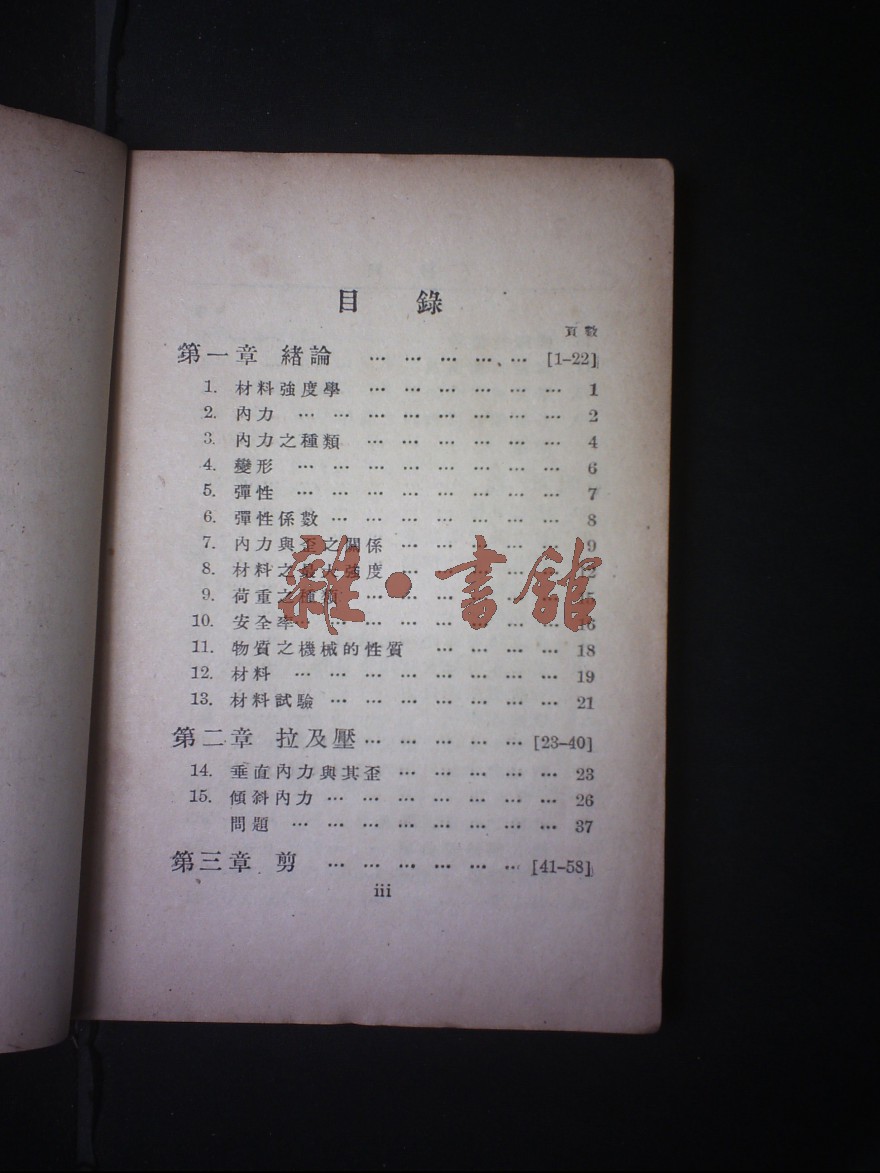 目 錄
頁數
第一章 緒論 … … … … … [1–22]
1. 材料強度學 … … … … … … 1
2. 內力 … … … … … … … … 2
3. 內力之種類 … … … … … … 4
4. 變形 … … … … … … … … 6
5. 彈性 … … … … … … … … 7
6. 彈性係數 … … … … … … … 8
7. 內力與歪之關係 … … … … … 9
8. 材料之最大強度 … … … … …
9. 荷重之種類 … … … … … …
10. 安全率 … … … … … … … 16
11. 物質之機械的性質 … … … … 18
12. 材料 … … … … … … … … 19
13. 材料試驗 … … … … … … … 21
第二章 拉及壓 … … … … … [23–40]
14. 垂直內力與其歪 … … … … … 23
15. 傾斜內力 … … … … … … … 26
問題 … … … … … … … … 37
第三章 剪 … … … … … … [41–58]
iii
雜·書館